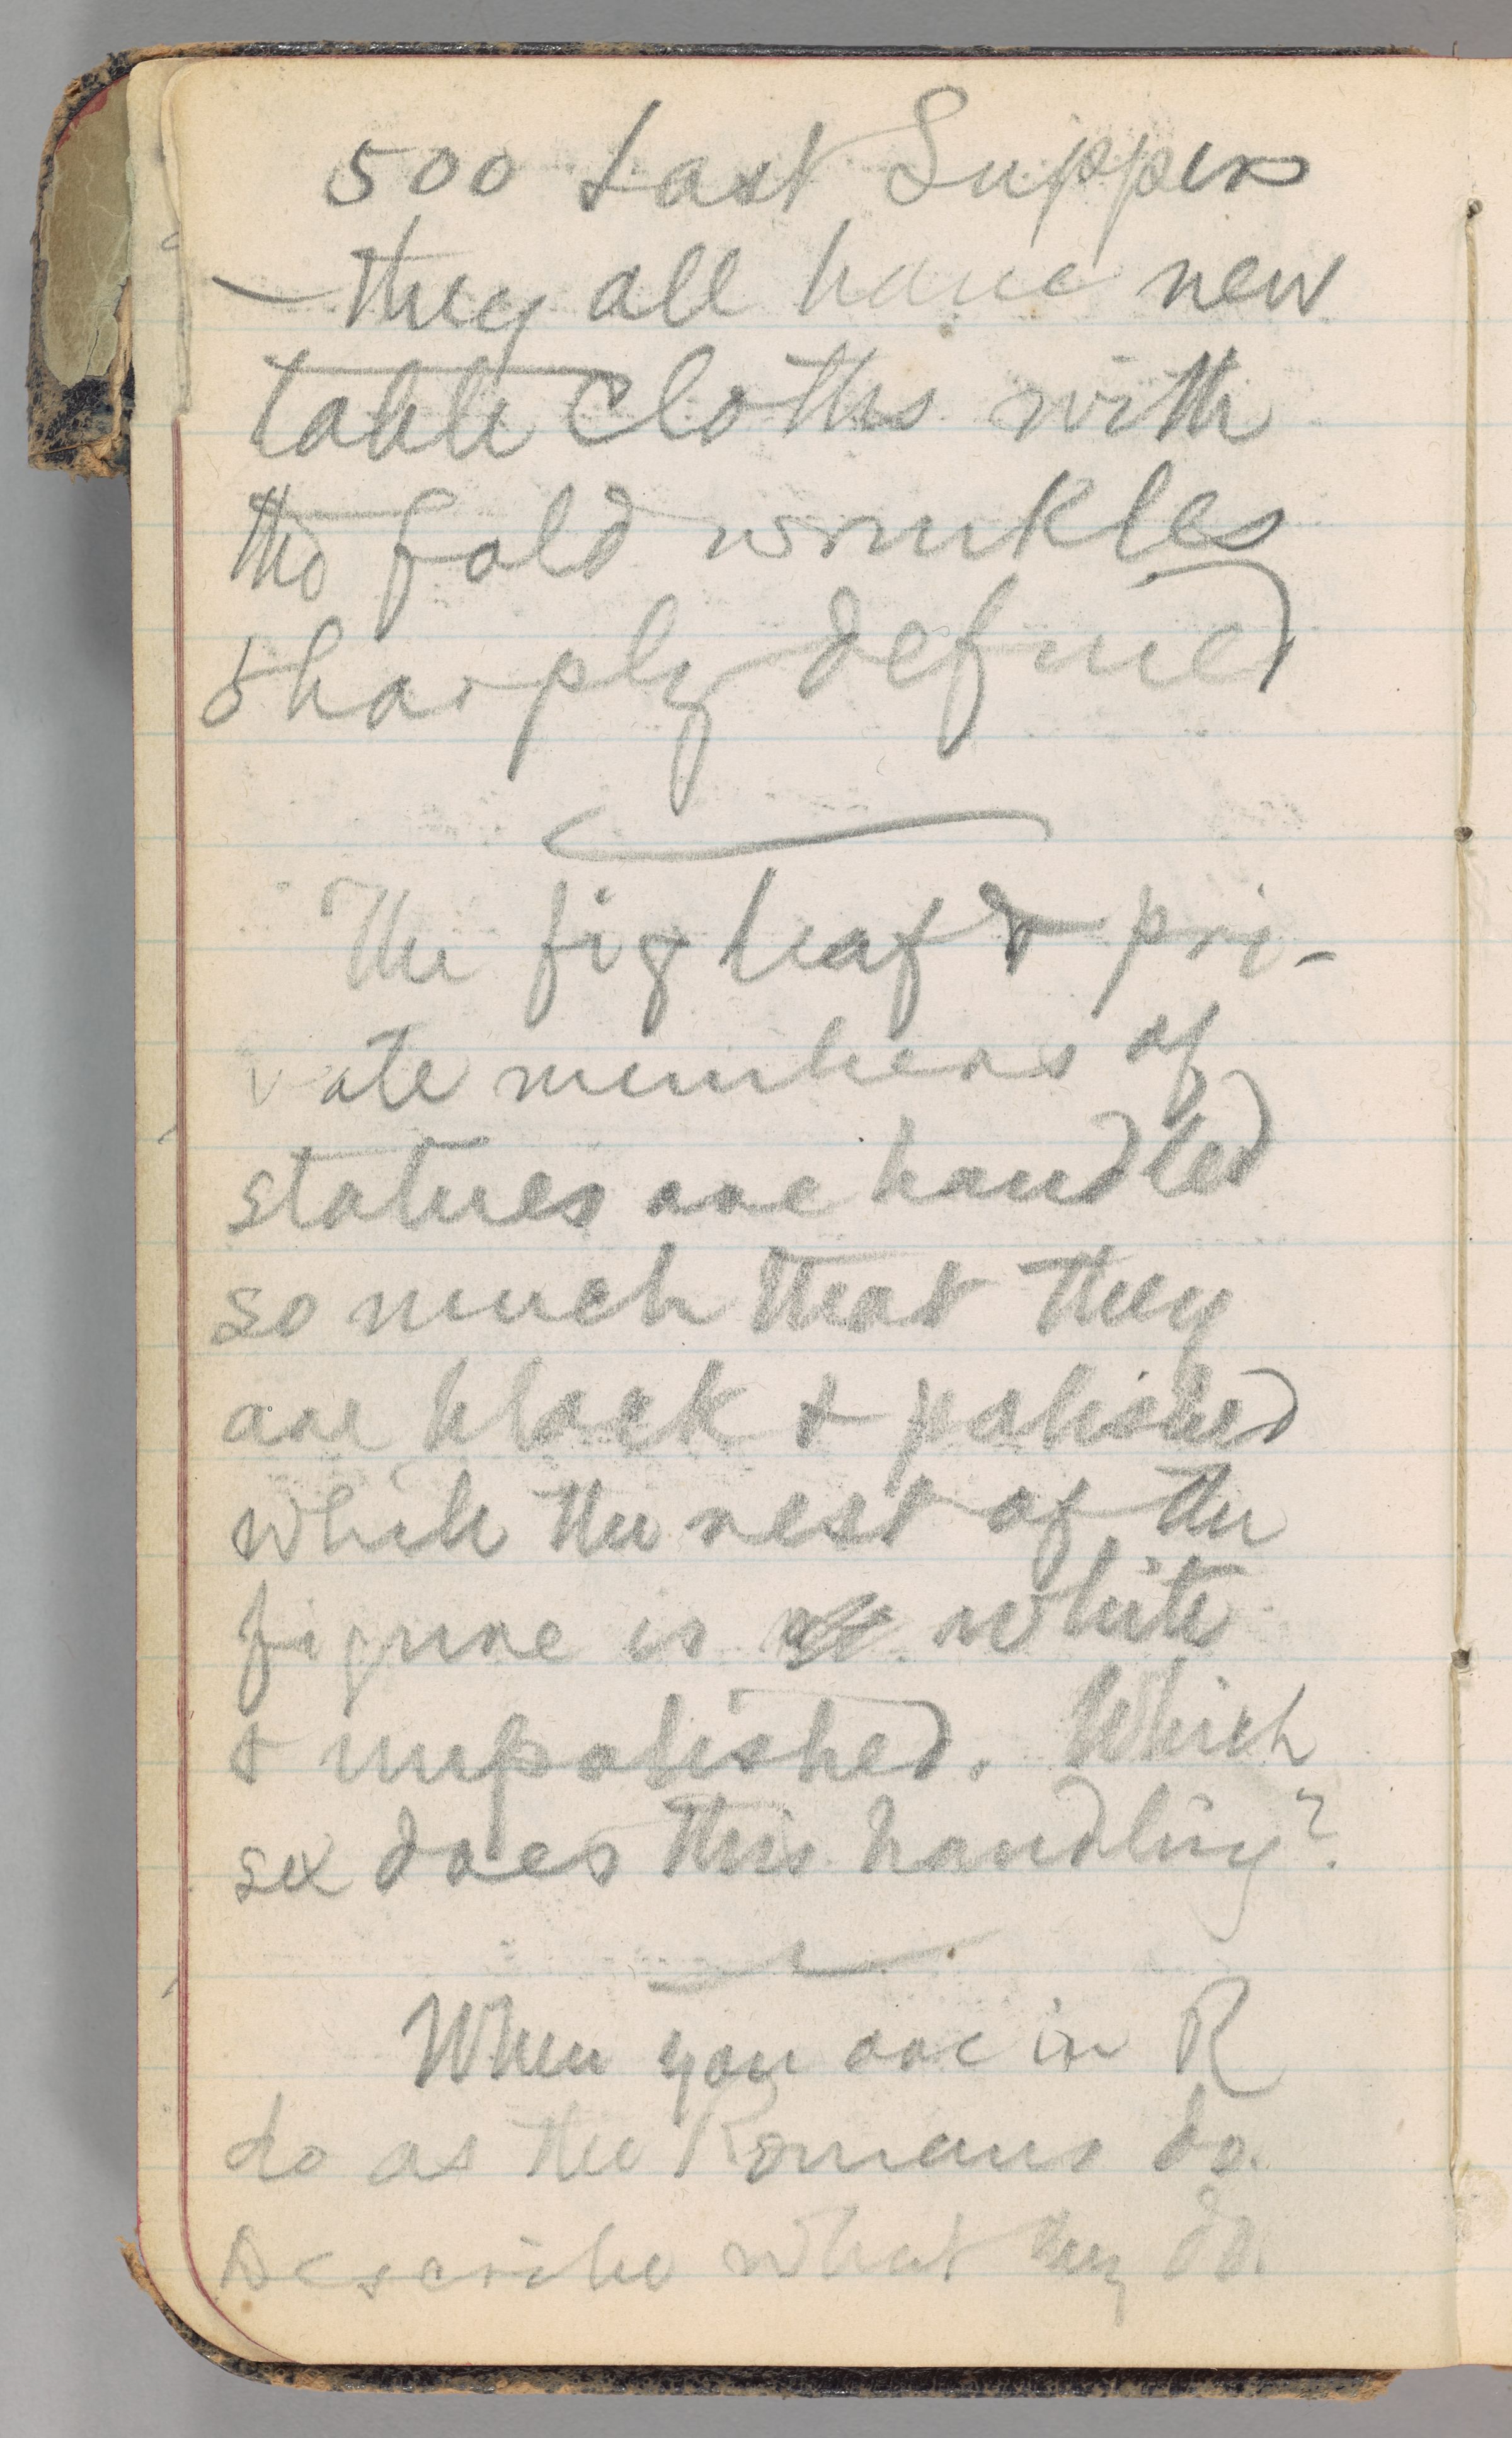 500 Last Suppers
—they all have new
table cloths with
the fold wrinkles
sharply defined
The fig leaf & pri-
vate members of
statues are handled
so much that they
are black & polished
while the rest of the
figure is white
& unpolished. Which
sex does this handling?
When you are in R
do as the Romans do.
Describe what they do.